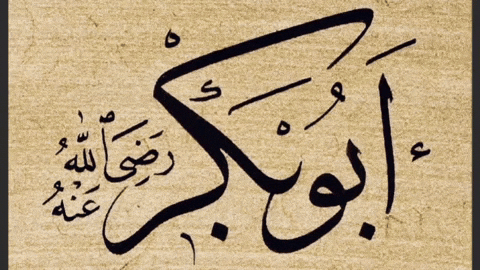 أَبُو بَكْر
رَضِيَ ٱللَّٰهُ
عَنْهُ